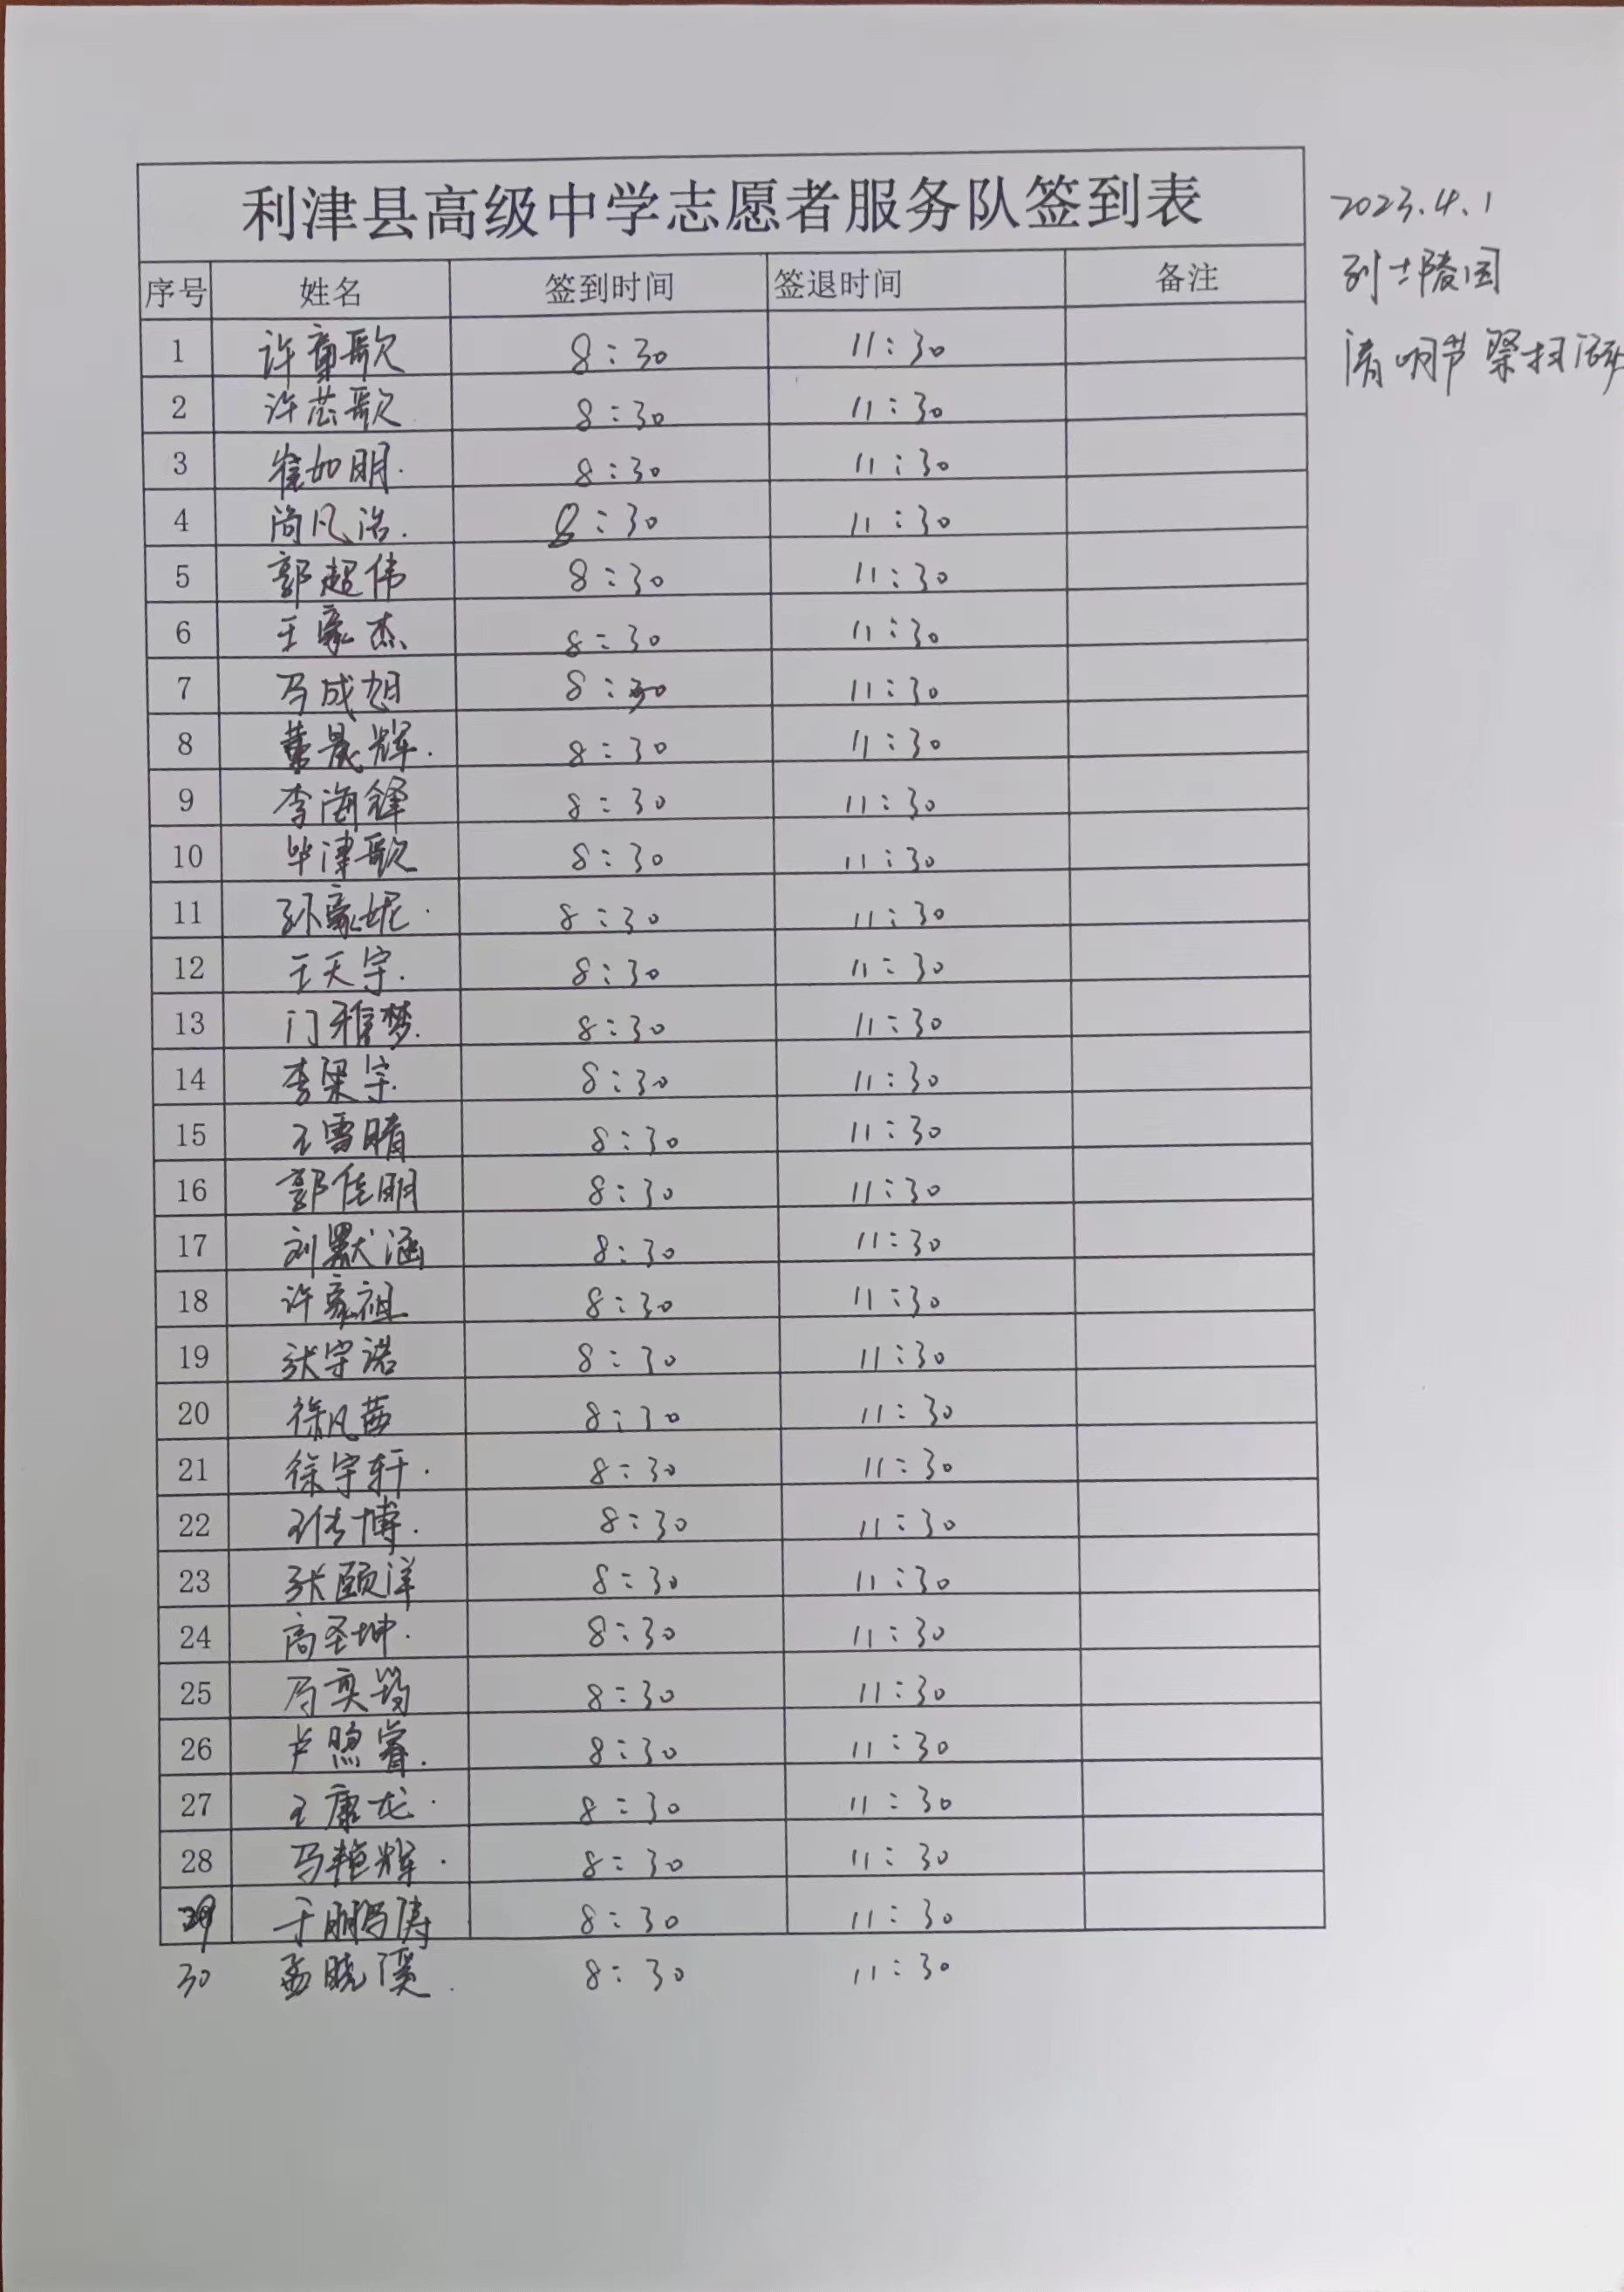 利津县高级中学志愿者服务队签到表
2023.4.1
烈士陵园
清明节祭扫活动
序号 姓名 签到时间 签退时间 备注
1 许童歌 8:30 11:30
2 许芸歌 8:30 11:30
3 崔如明. 8:30 11:30
4 尚凡浩. 8:30 11:30
5 郭超伟 8:30 11:30
6 王家杰 8:30 11:30
7 马成旭 8:30 11:30
8 董晟辉. 8:30 11:30
9 李海锋 8:30 11:30
10 毕津歌 8:30 11:30
11 孙家妮. 8:30 11:30
12 王天宇. 8:30 11:30
13 门雅梦. 8:30 11:30
14 李梁宇. 8:30 11:30
15 王雪晴 8:30 11:30
16 郭佳明 8:30 11:30
17 刘默涵 8:30 11:30
18 许家祖 8:30 11:30
19 张宇诺 8:30 11:30
20 徐凡茜 8:30 11:30
21 徐宇轩. 8:30 11:30
22 王传博. 8:30 11:30
23 张颐洋 8:30 11:30
24 高圣坤. 8:30 11:30
25 8:30 11:30
26 卢照睿. 8:30 11:30
27 王康龙. 8:30 11:30
28 马艳辉. 8:30 11:30
29 于鹏涛 8:30 11:30
30 孟晓溪. 8:30 11:30